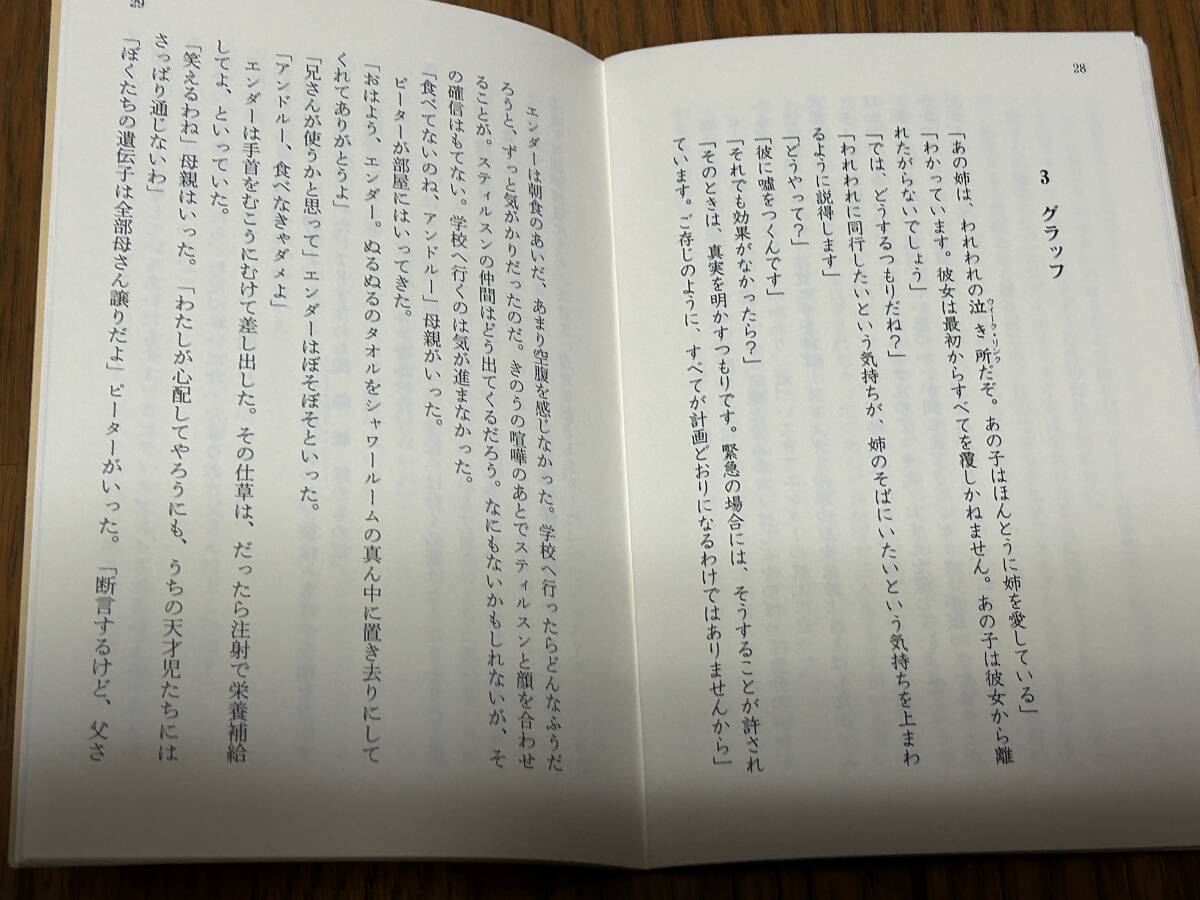 28
3 グラッフ
「あの姉は、われわれの泣き所だぞ。あの子はほんとうに姉を愛している」
ウィーク・リンク
「わかっています。彼女は最初からすべてを覆しかねません。あの子は彼女から離
れたがらないでしょう」
「では、どうするつもりだね?」
「われわれに同行したいという気持ちが、姉のそばにいたいという気持ちを上まわ
るように説得します」
「どうやって?」
「彼に嘘をつくんです」
「それでも効果がなかったら?」
「そのときは、真実を明かすつもりです。緊急の場合には、そうすることが許され
ています。ご存じのように、すべてが計画どおりになるわけではありませんから」
29
エンダーは朝食のあいだ、あまり空腹を感じなかった。学校へ行ったらどんなふうだ
ろうと、ずっと気がかりだったのだ。きのうの喧嘩のあとでスティルスンと顔を合わせ
ることが。スティルスンの仲間はどう出てくるだろう。なにもないかもしれないが、そ
の確信はもてない。学校へ行くのは気が進まなかった。
「食べてないのね、アンドルー」母親がいった。
ピーターが部屋にはいってきた。
「おはよう、エンダー。ぬるぬるのタオルをシャワールームの真ん中に置き去りにして
くれてありがとうよ」
「兄さんが使うかと思って」エンダーはぼそぼそといった。
「アンドルー、食べなきゃダメよ」
エンダーは手首をむこうにむけて差し出した。その仕草は、だったら注射で栄養補給
してよ、といっていた。
「笑えるわね」母親はいった。「わたしが心配してやろうにも、うちの天才児たちには
さっぱり通じないわ」
「ぼくたちの遺伝子は全部母さん譲りだよ」ピーターがいった。「断言するけど、父さ